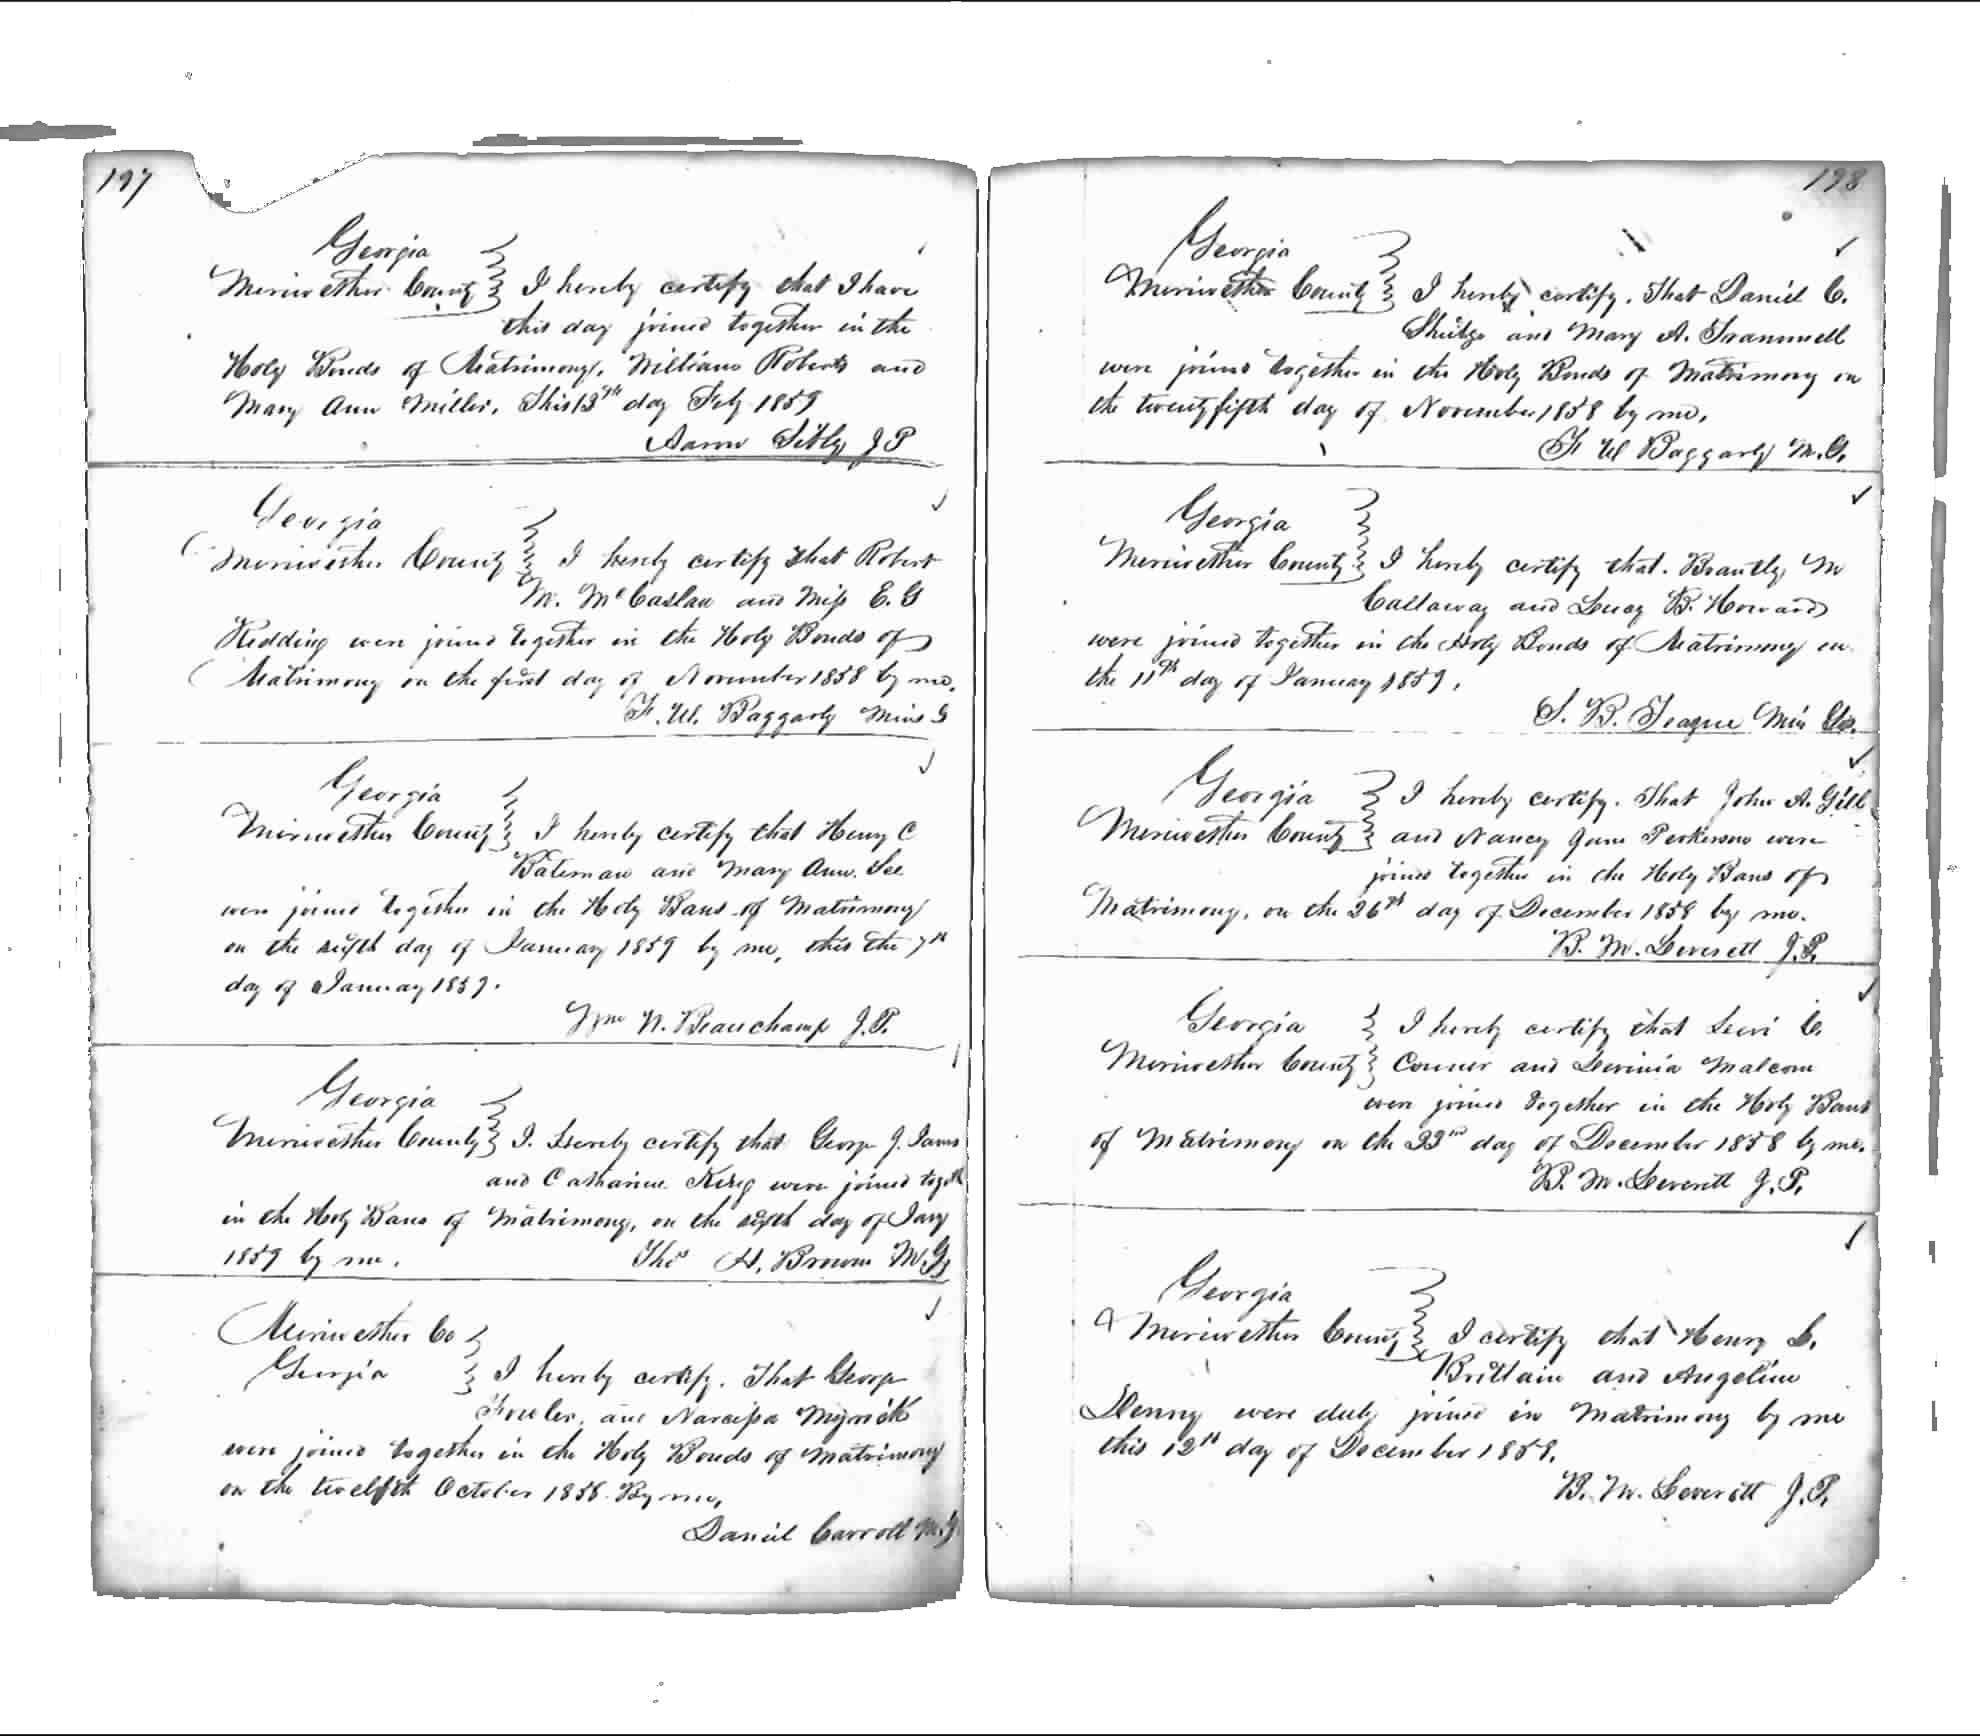 197
Georgia
Meriwether County I hereby certify that I have
this day joined together in the
Holy Bonds of Matrimony, William Roberts and
Mary Ann Miller, This 13th day Feby 1859
Aaron Sibly J P
Georgia
Meriwether County I hereby certify that Robert
M. McCaslan and Miss E. G
Redding were joined together in the Holy Bonds of
Matrimony on the first day of November 1858 by me,
F. W. Baggarly Mins G
Georgia
Meriwether County I hereby certify that Henry C
Bateman and Mary Ann Lee
were joined together in the Holy Bans of Matrimony
on the sixth day of January 1859 by me, this the 7th
day of January 1859.
Wm N. Beauchamp J.P.
Georgia
Meriwether County I. Hereby certify that George J.
and Catharine King were joined togeth
in the Holy Bans of Matrimony, on the sixth day of Jany
1859 by me. Thos H. Brown M.G.
Meriwether Co
Georgia I hereby certify. That George
Fowler, and Narcissa Myrick
were joined together in the Holy Bonds of Matrimony
on the twelfth October 1858. By me,
Daniel Carroll M.G.
198
Georgia
Meriwether County I hereby certify. That Daniel C.
and Mary A. Trammell
were joined together in the Holy Bonds of Matrimony on
the twentyfifth day of November 1858 by me,
F W Baggarly M.G.
Georgia
Meriwether County I hereby certify that. Brantly M
Callaway and Lucy B. Howard
were joined together in the Holy Bonds of Matrimony on
the 11th day of January 1859,
S. B. Teague Min Gs.
Georgia I hereby certify. That John A. Gill
Meriwether County and Nancy Jane Perkerson were
joined together in the Holy Bans of
Matrimony, on the 26th day of December 1858 by me.
B. M. Leverett J.P.
Georgia I hereby certify that Levi C.
Meriwether County Conner and Levinia Malcom
were joined together in the Holy Bans
of Matrimony on the 23rd day of December 1858 by me.
B. M. Leverett J.P.
Georgia
Meriwether County I certify that Henry L.
Brittain and Angeline
Henny were duly joined in Matrimony by me
this 12th day of December 1858.
B. M. Leverett J.P.